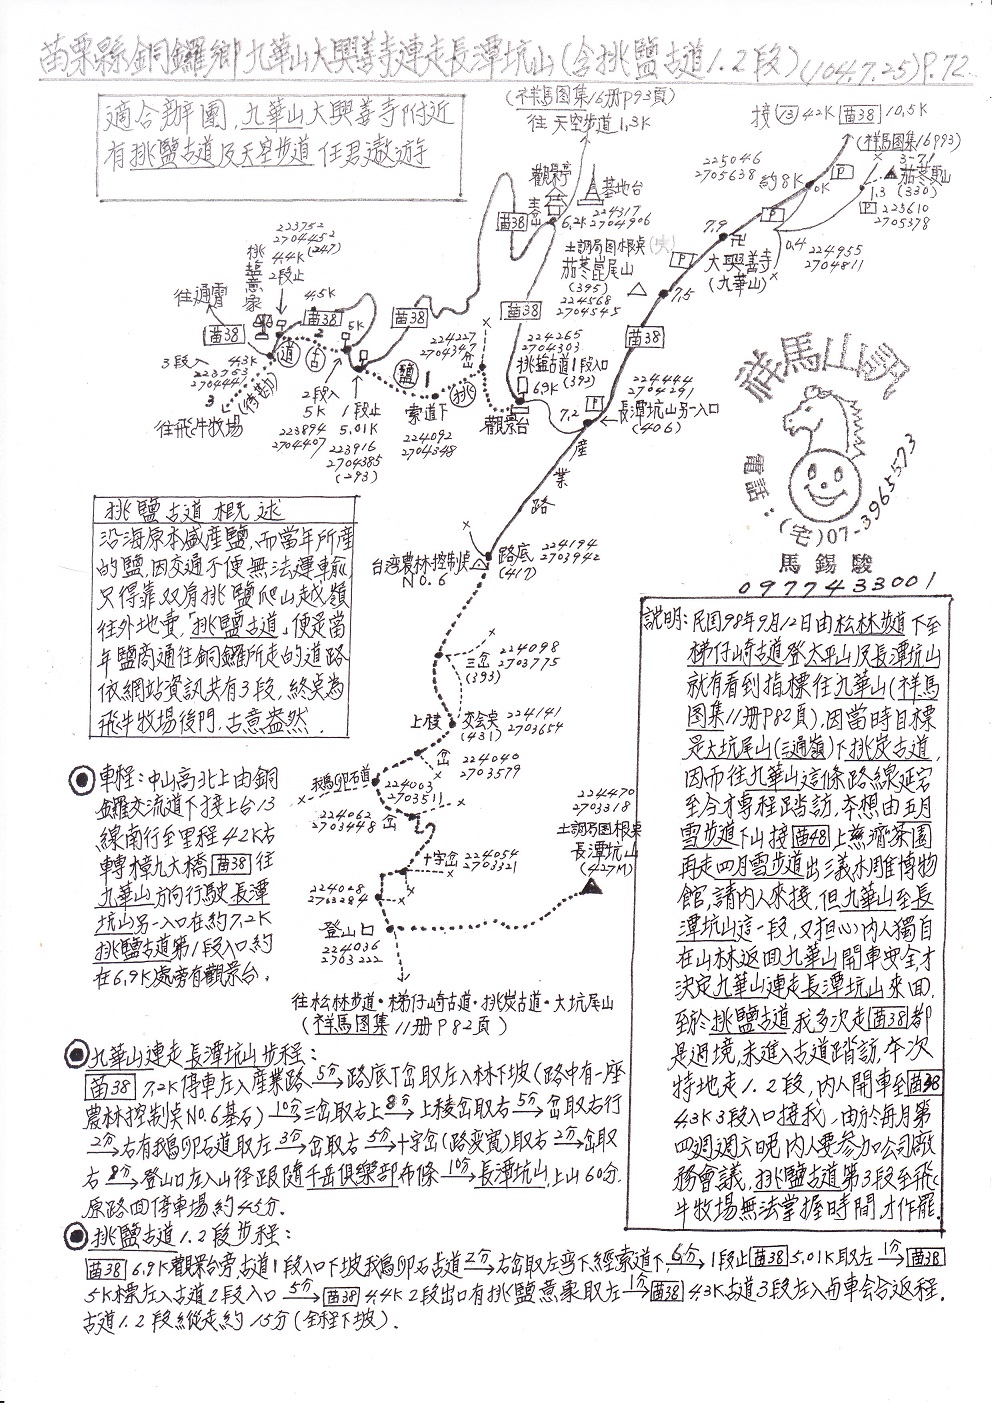 苗栗縣銅鑼鄉九華山大興善寺連走長潭坑山(含挑鹽古道1.2段)(104.7.25)P.72
適合辦團,九華山大興善寺附近
有挑鹽古道及天空步道 任君遨遊
(祥馬図集16册P93頁)
往 天空步道1.3K
接⑬42K 苗38 10.5K
(祥馬図集16P93)
3-71
茄苳里山
1.3 (330)
P 223610
2705378
225046
2705638
約8K
0K
P
P
7.9
卍
大興善寺
(九華山)
0.4
224955
2704811
觀景亭
基地台
苗38
6.2K
224317
2704906
土調局図根桌(失)
茄苳崑尾山
(395)
224568
2704545
P
7.5
223752
2704452
4.4K(247)
2段止
挑鹽意象
往通霄
苗38
4.5K
苗38
5K
苗38
苗38
苗38
3段入 4.3K
223763
2704441
3
(待勘)
往飛牛牧場
道 2 古
鹽 1 挑
2段入
5K
223894
2704407
1段止
5.01K
223916
2704385
(293)
索道下
224092
2704348
224227
2704347
岔
224265
2704303
挑鹽古道1段入口
6.9K (392)
觀景台
P
7.2
224444
2704291
長潭坑山另一入口
(406)
産業路
祥馬山訊
電話:(宅)07-3965573
馬錫駿
0977433001
挑鹽古道概述
沿海原本盛産鹽,而當年所産
的鹽,因交通不便無法運輸,
只得靠双肩挑鹽爬山越嶺
往外地賣,「挑鹽古道」便是當
年鹽商通往銅鑼所走的道路
依網站資訊共有3段,終桌為
飛牛牧場後門,古意盎然.
台湾農林控制桌
NO.6
路底
(417)
224194
2703942
三岔
(393)
224098
2703775
上稜
交会桌
(431)
224141
2703654
岔
224040
2703579
鵝卵石道
224003
2703511
224062
2703448
岔
十字岔
224054
2703321
224028
2703284
登山口
224036
2703222
224470
2703318
土調局図根桌
長潭坑山
(427M)
往松林步道·梯仔崎古道·挑炭古道·大坑尾山
(祥馬図集11册P82頁)
◉車程:中山高北上由銅
鑼交流道下接上台13
線南行至里程42K右
轉樟九大橋苗38往
九華山方向行駛長潭
坑山另一入口在約7.2K
挑鹽古道第1段入口約
在6.9K處旁有觀景台.
説明:民国98年9月12日由松林步道下至
梯仔崎古道登太平山及長潭坑山
就有看到指標往九華山(祥馬
図集11册P82頁),因當時目標
是大坑尾山(三通嶺)下挑炭古道,
因而往九華山這條路線延宕
至今才專程踏訪,本想由五月
雪步道下山接苗48上慈濟茶園
再走四月雪步道出三義木雕博物
館,請内人來接,但九華山至長
潭坑山這一段,又担心内人獨自
在山林返回九華山開車安全,才
決定九華山連走長潭坑山來回.
至於挑鹽古道我多次走苗38都
是過境,未進入古道踏訪,本次
特地走1.2段,内人開車至苗38
4.3K3段入口接我,由於每月第
四週週六吧内人要參加公司廠
務會議,挑鹽古道第3段至飛
牛牧場無法掌握時間才作罷.
◉九華山連走長潭坑山步程:
苗38 7.2K停車左入産業路 5分→路底下岔取左入林下坡(路中有一座
農林控制桌NO.6基石) 10分→三岔取右上 8分→上稜岔取右 5分→岔取右行
2分→右有鵝卵石道取左 3分→岔取右 5分→十字岔(路変寬)取右 2分→岔取
右 8分→登山口左入山径跟隨千岳俱樂部布條 10分→長潭坑山,上山60分.
原路回停車場約45分.
◉挑鹽古道1.2段步程:
苗38 6.9K觀景台旁,古道1段入口下坡鵝卵石古道 2分→右岔取左彎下經索道下 6分→1段止苗38 5.01K取左 1分→苗38
5K標左入古道2段入口 5分→苗38 4.4K2段出口有挑鹽意象取左 1分→苗38 4.3K古道3段左入与車会合返程.
古道1.2段縱走約15分(全程下坡).